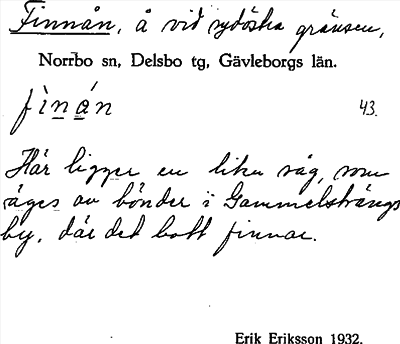 Finnån, å vid sydöstra gränsen,
Norrbo sn, Delsbo tg, Gävleborgs län.
fìnán
43.
Här ligger en liten såg, som
äges av bönder i Gammelsträngs
by, där det bott finnar.
Erik Eriksson 1932.